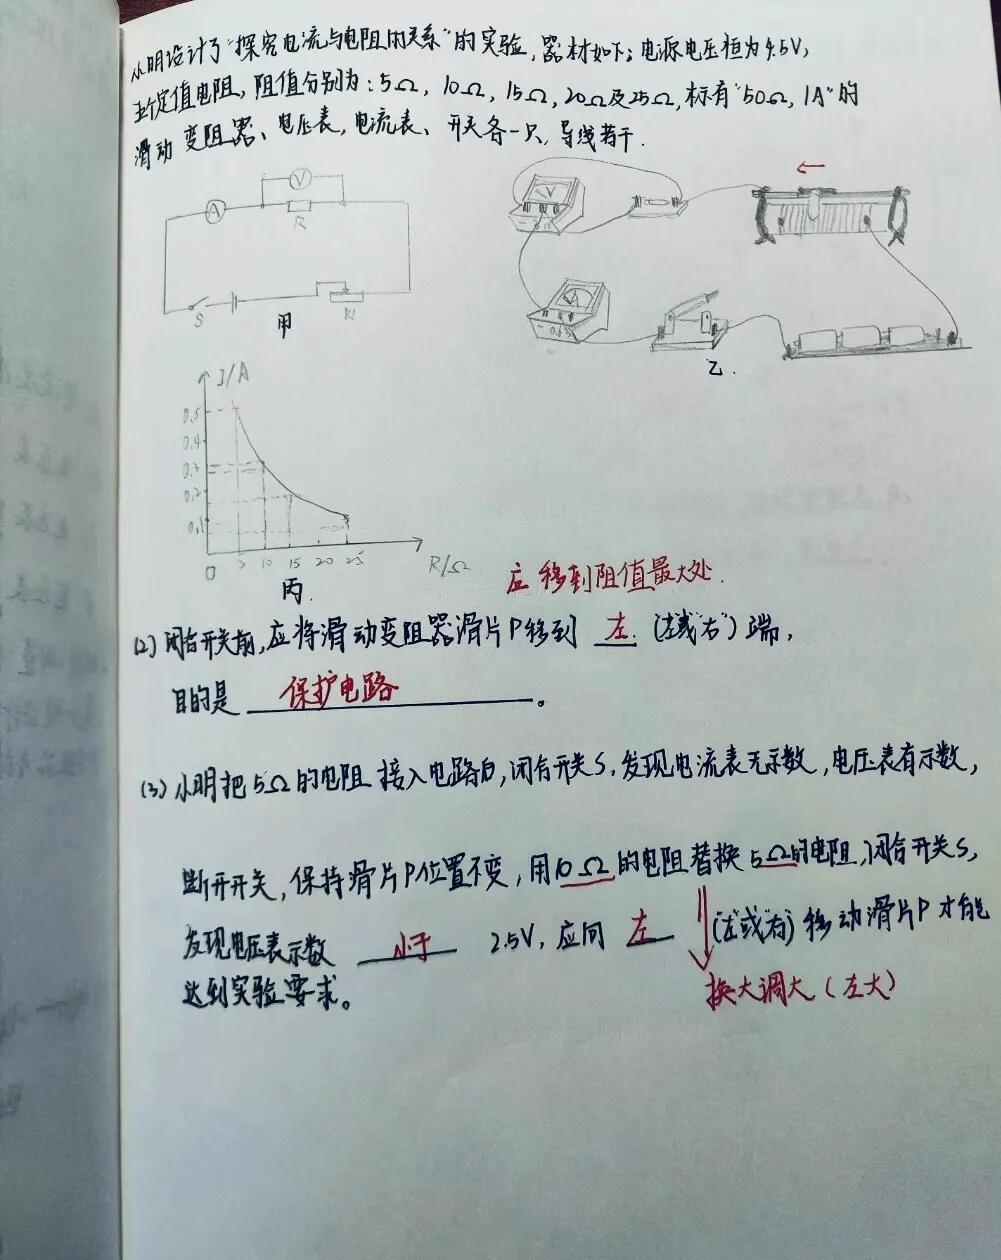 小明设计了"探究电流与电阻的关系"的实验,器材如下:电源电压恒为4.5V,
五个定值电阻,阻值分别为:5Ω,10Ω,15Ω,20Ω及25Ω,标有"50Ω,1A"的
滑动变阻器、电压表,电流表、开关各一只,导线若干.
V
A
R
S
R1
甲
V
A
- 0.6 3
乙.
I/A
0.5
0.4
0.3
0.2
0.1
0 5 10 15 20 25 R/Ω
丙.
应移到阻值最大处.
(2)闭合开关前,应将滑动变阻器滑片P移到 左 (左"或"右")端,
目的是 保护电路 。
(3)小明把5Ω的电阻接入电路后,闭合开关S,发现电流表无示数,电压表有示数,
断开开关,保持滑片P位置不变,用10Ω的电阻替换5Ω的电阻,闭合开关S,
发现电压表示数 小于 2.5V,应向 左 (左"或"右)移动滑片P才能
达到实验要求。
换大调大(左大)